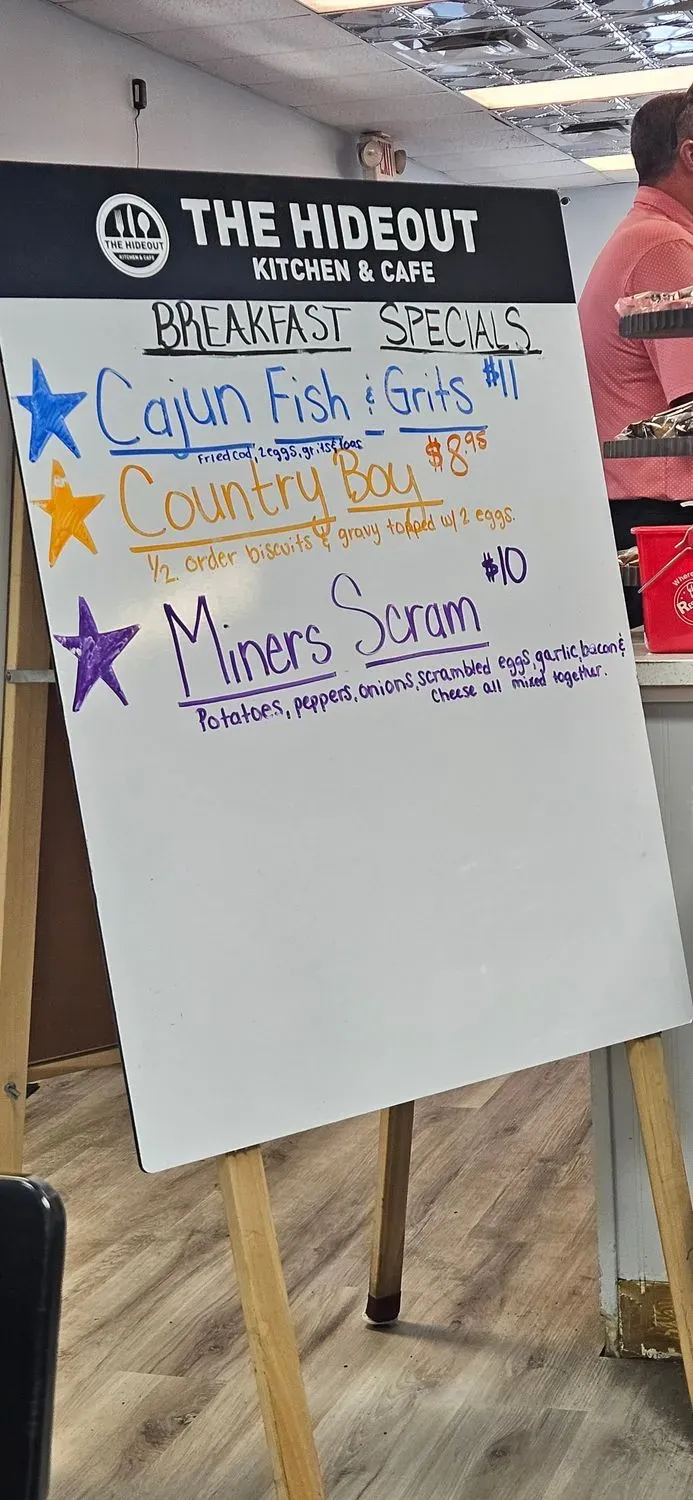 THE HIDEOUT
KITCHEN & CAFE
THE HIDEOUT
KITCHEN & CAFE
BREAKFAST SPECIALS
Cajun Fish & Grits $11
Fried cod, 2 eggs, grits & toast
Country Boy $8.95
1/2 order biscuits & gravy topped w/ 2 eggs.
Miners Scram $10
Potatoes, peppers, onions, scrambled eggs, garlic, bacon &
Cheese all mixed together.